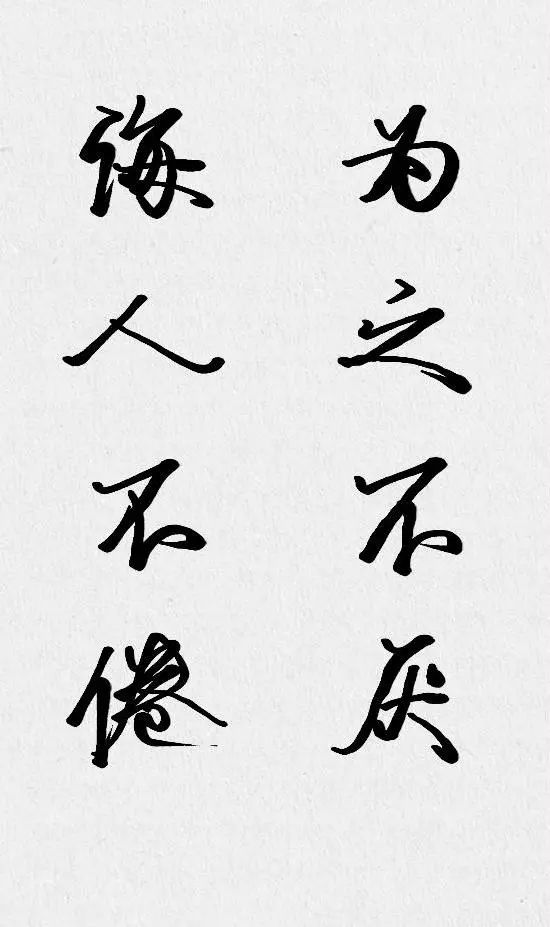 为之不厌
诲人不倦